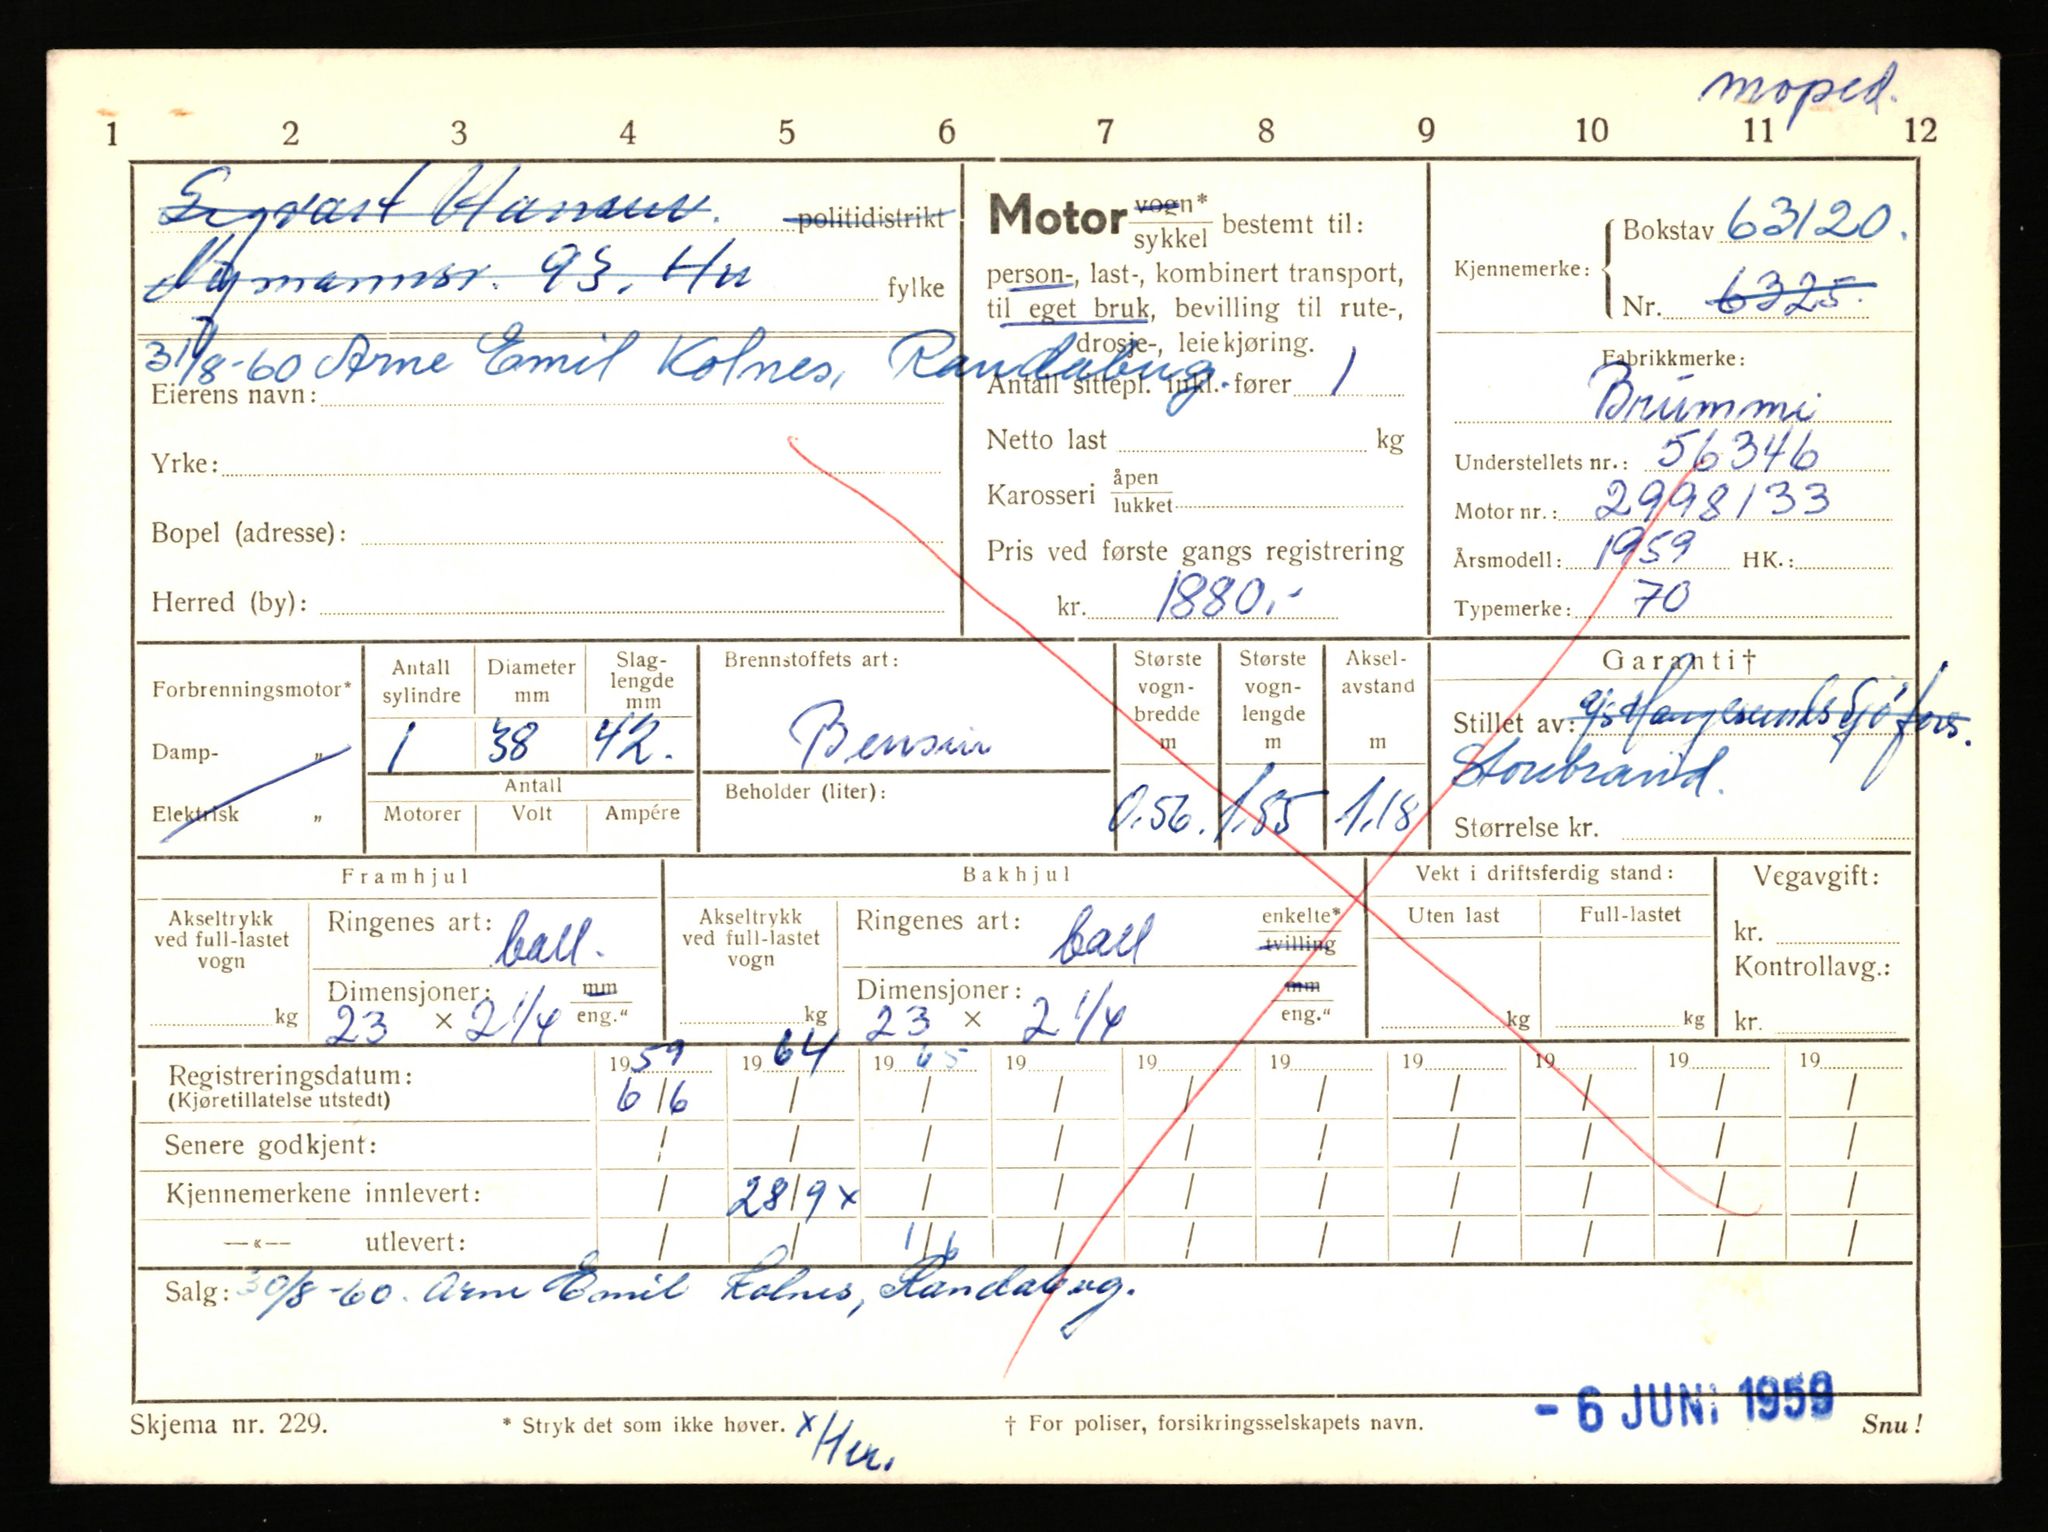 moped.
1 2 3 4 5 6 7 8 9 10 11 12
Sigvart Hansen. politidistrikt
Nymannsv. 93. Hu fylke
31/8-60 Arne Emil Kolnes, Randabug.
Eierens navn:
Yrke:
Bopel (adresse):
Herred (by):
Motor vogn* sykkel bestemt til:
person-, last-, kombinert transport,
til eget bruk, bevilling til rute-,
drosje-, leiekjøring.
Antall sittepl. inkl. fører 1
Netto last kg
Karosseri åpen lukket
Pris ved første gangs registrering
kr. 1880,-
Kjennemerke: Bokstav 63120.
Nr. 6325.
Fabrikkmerke:
Brummi
Understellets nr.: 56346
Motor nr.: 2998133
Årsmodell: 1959 HK.:
Typemerke: 70
Forbrenningsmotor*
Damp- „
Elektrisk „
Antall sylindre 1
Diameter mm 38
Slag-lengde mm 42.
Antall
Motorer Volt Ampére
Brennstoffets art:
Bensin
Beholder (liter):
Største vogn-bredde m 0,56.
Største vogn-lengde m 1,85
Aksel-avstand m 1,18
Garanti†
Stillet av: Haugesunds Sjøfors.
Storebrand.
Størrelse kr.
Framhjul
Akseltrykk ved full-lastet vogn
kg
Ringenes art: ball.
Dimensjoner: mm eng.“
23 × 2 1/4
Bakhjul
Akseltrykk ved full-lastet vogn
kg
Ringenes art: ball enkelte* tvilling
Dimensjoner: mm eng.“
23 × 2 1/4
Vekt i driftsferdig stand:
Uten last Full-lastet
kg kg
Vegavgift:
kr.
Kontrollavg.:
kr.
1959 1964 1965 19 19 19 19 19 19 19
Registreringsdatum: 6/6 / / / / / / / / /
(Kjøretillatelse utstedt)
Senere godkjent: / / / / / / / / / /
Kjennemerkene innlevert: / 28/9 x / / / / / / / /
—«— utlevert: / / 1/6 / / / / / / /
Salg: 30/8-60. Arne Emil Kolnes, Randabug.
- 6 JUNI 1959
Skjema nr. 229. * Stryk det som ikke høver. † For poliser, forsikringsselskapets navn. Snu!
x Hu.